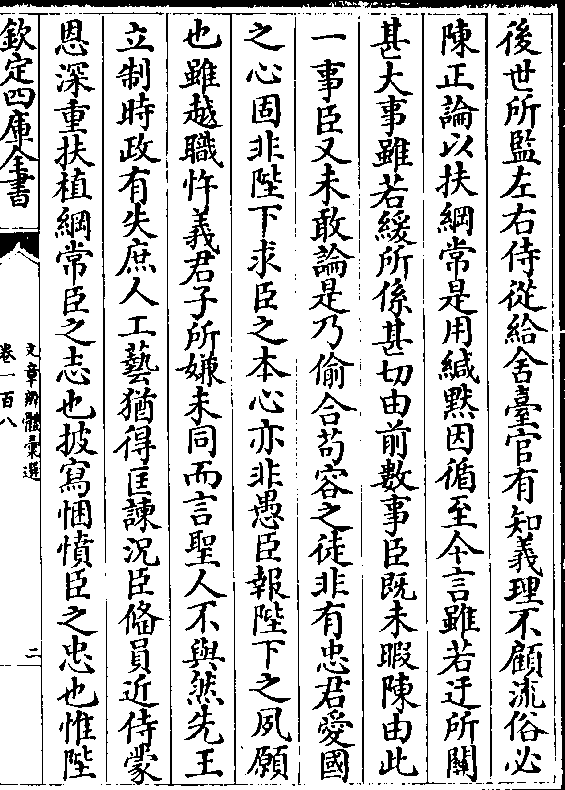 後世所監左右侍從給舍臺官有知義理不顧流俗必
陳正論以扶綱常是用緘黙因循至今言雖若迂所關
甚大事雖若緩所係甚切由前數事臣既未暇陳由此
一事臣又未敢論是乃偷合苟容之徒非有忠君愛國
之心固非陛下求臣之本心亦非愚臣報陛下之夙願
也雖越職忤義君子所嫌未同而言聖人不與然先王
立制時政有失庶人工藝猶得匡諫況臣偹員近侍蒙
恩深重扶植綱常臣之志也披寫悃憤臣之忠也惟陛
欽定四庫全書
文章辨體彙選
卷一百八
二